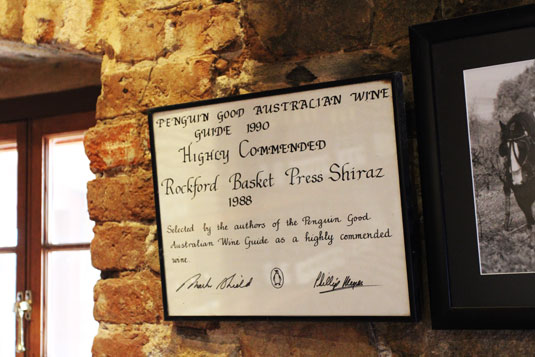 PENGUIN GOOD AUSTRALIAN WINE
GUIDE 1990
HIGHLY COMMENDED
Rockford Basket Press Shiraz
1988
Selected by the authors of the Penguin Good
Australian Wine Guide as a highly commended
wine.
Mark Shield Phillip Meyer